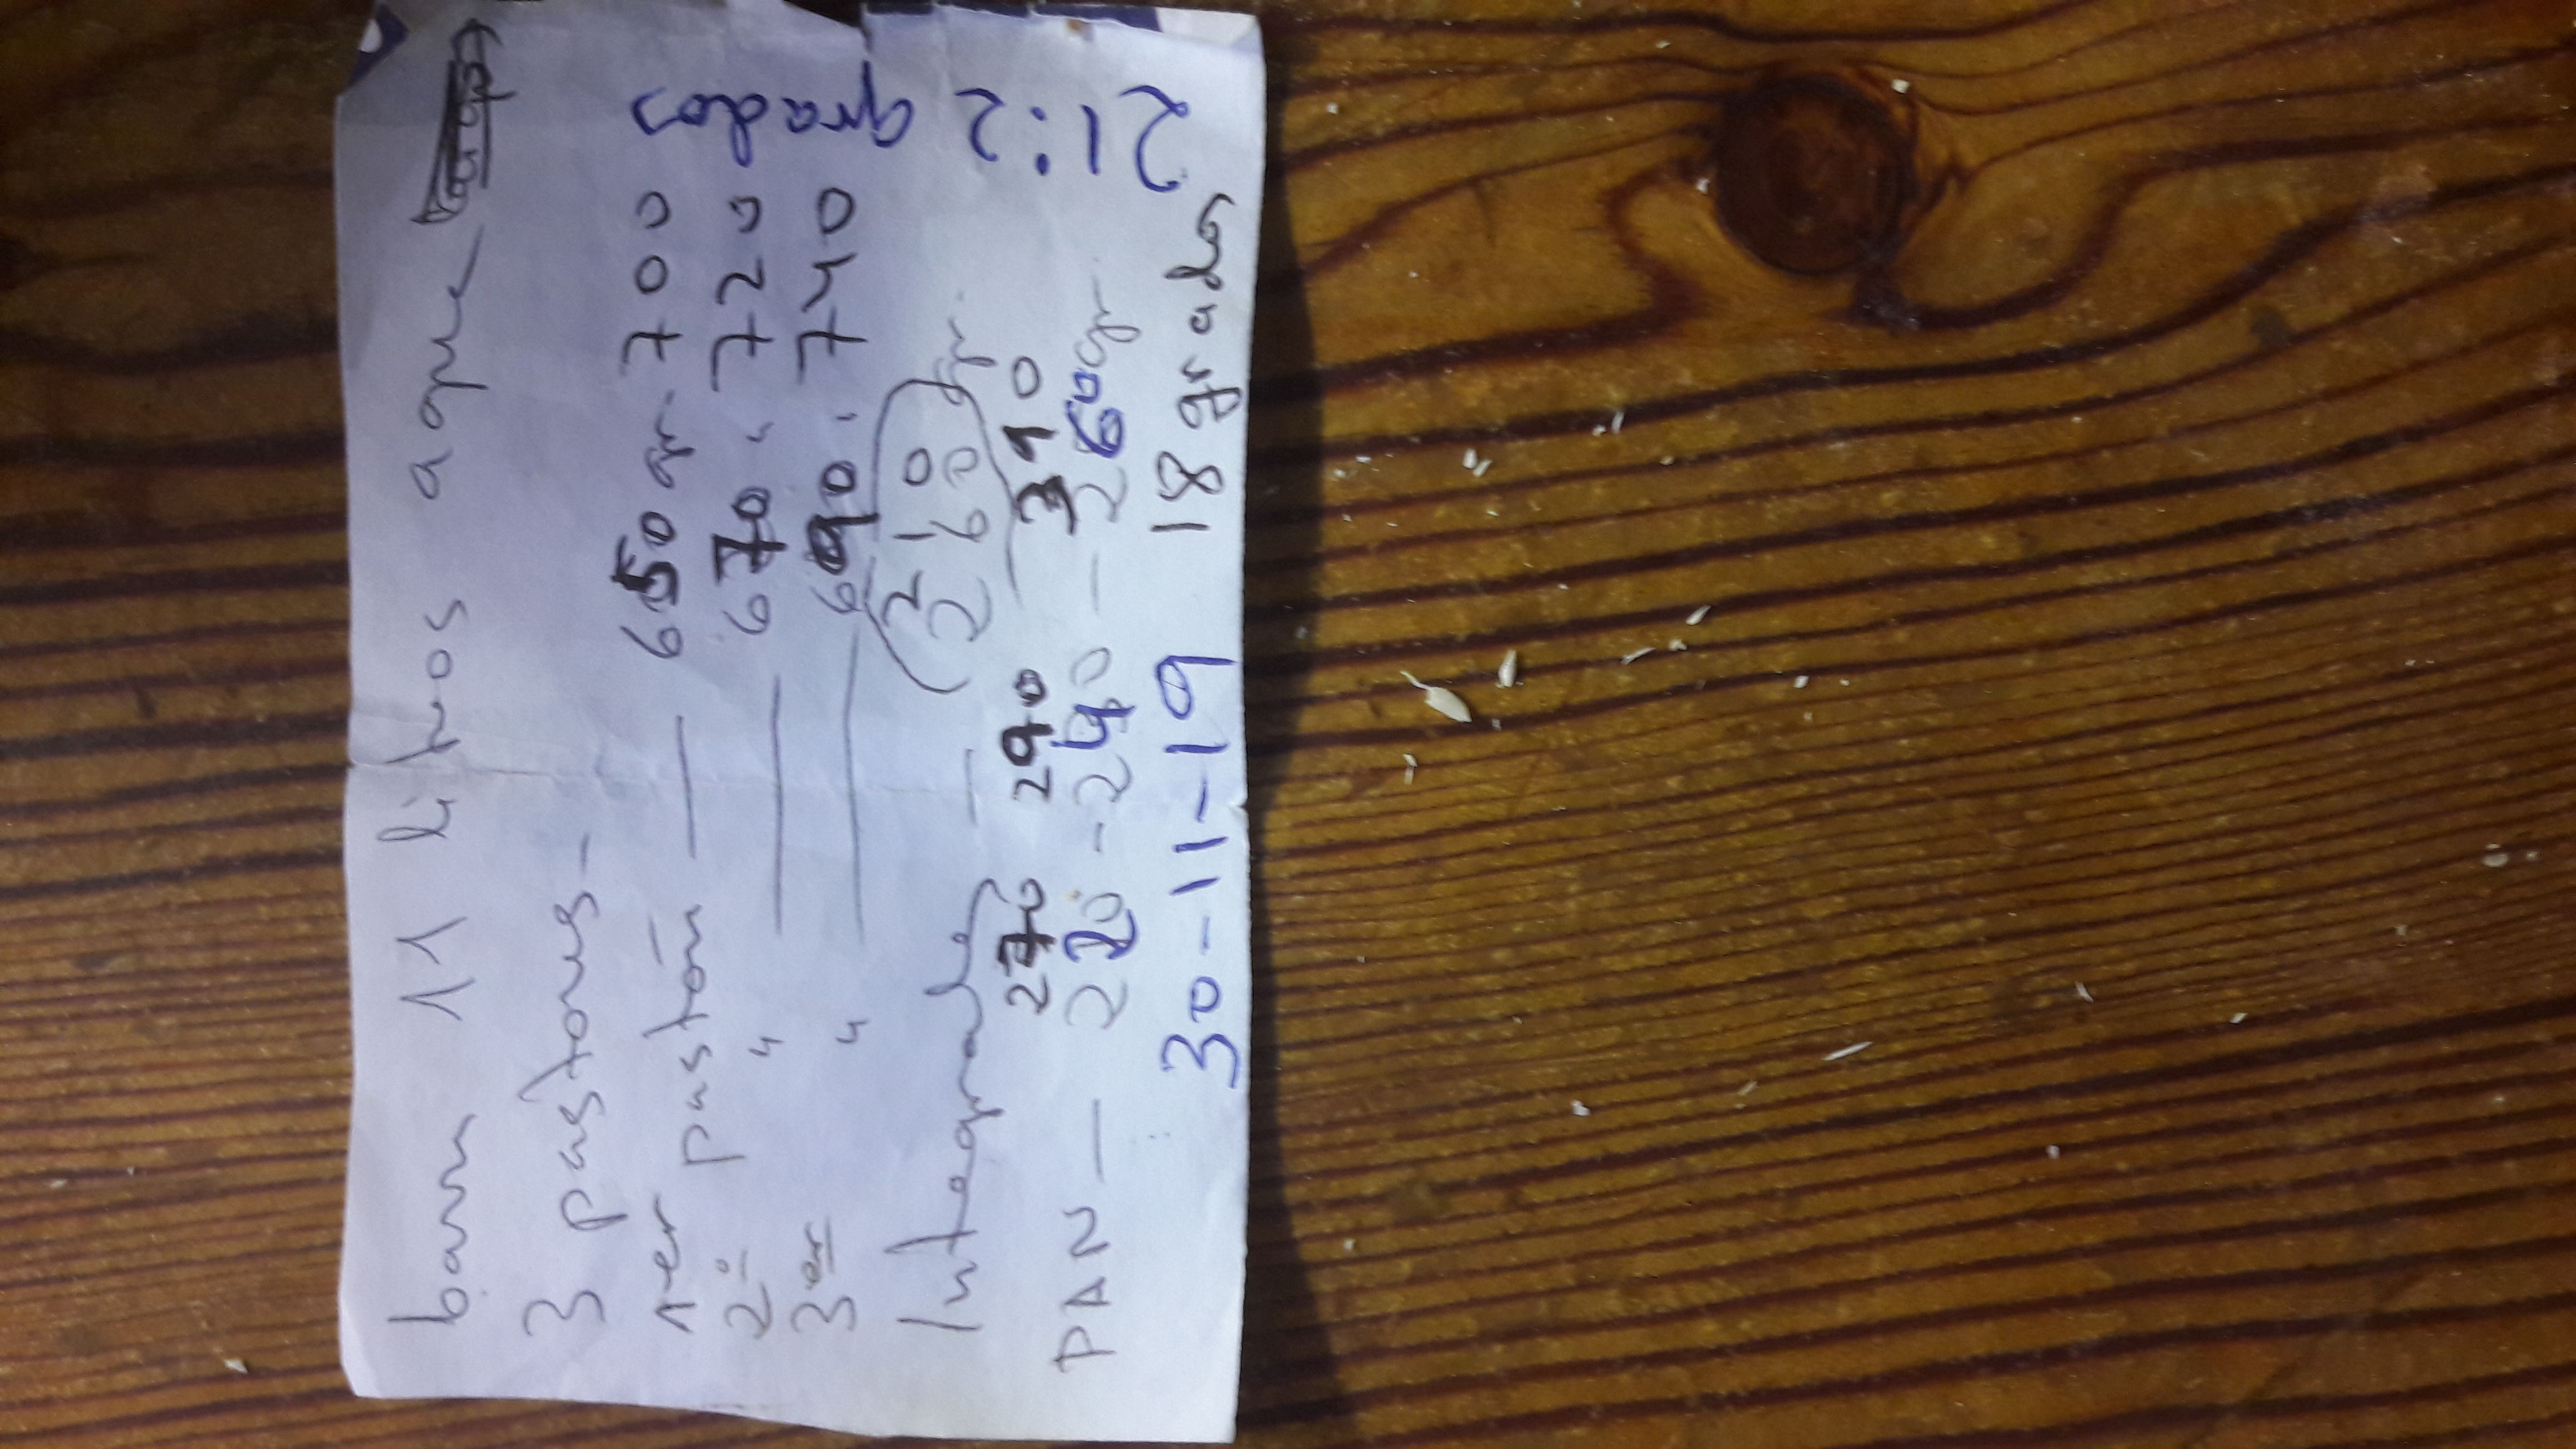 barn 11 litros agua
3 pastones-
1er pastón — 650 gr. 700
2º " — 670 " 720
3er " — 690 " 740
210
Integrales — 360 gr.
270 290 310
PAN — 220 - 240 - 260gr
30-11-19 18 grados
21:2 grados